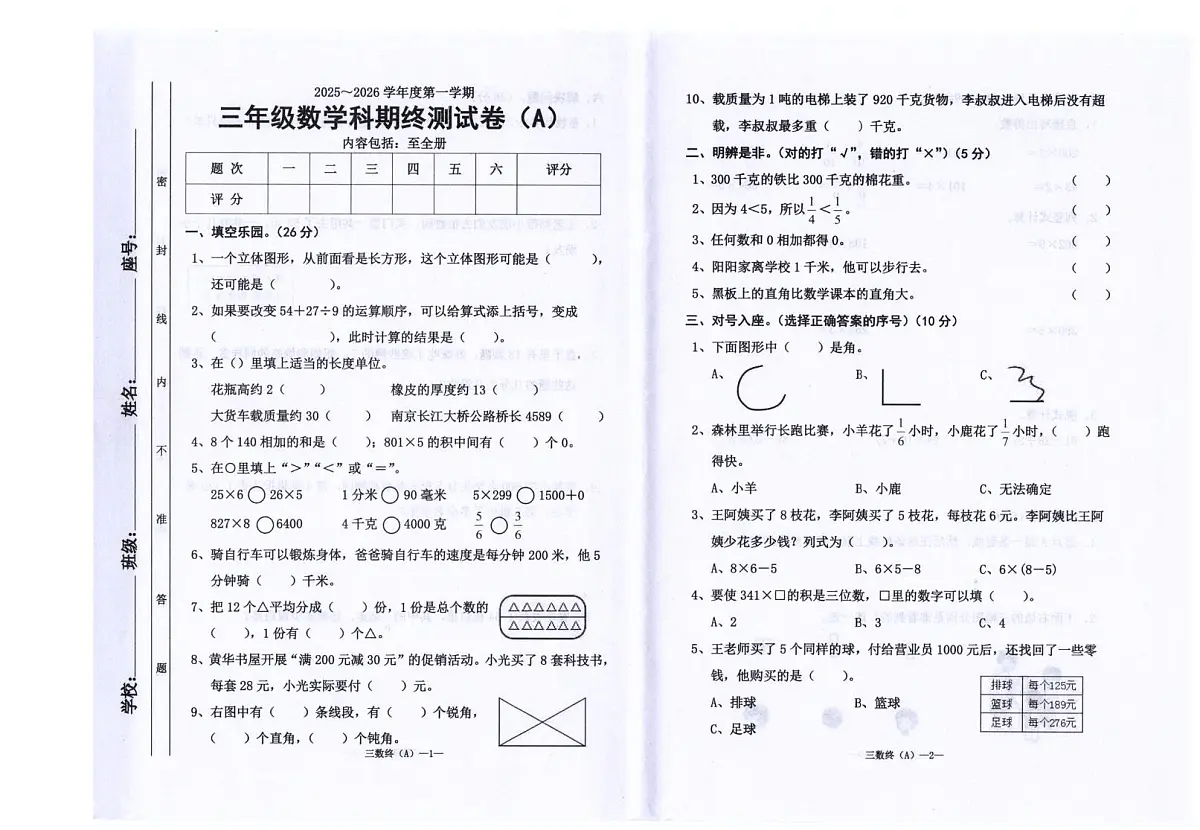 2025～2026 学年度第一学期
三年级数学科期终测试卷（A）
内容包括：至全册
题 次 一 二 三 四 五 六 评分
评 分
学校: 班级: 姓名: 座号:
密 封 线 内 不 准 答 题
一、填空乐园。（26 分）
1、一个立体图形，从前面看是长方形，这个立体图形可能是（ ），
还可能是（ ）。
2、如果要改变 54＋27÷9 的运算顺序，可以给算式添上括号，变成
（ ），此时计算的结果是（ ）。
3、在（）里填上适当的长度单位。
花瓶高约 2（ ） 橡皮的厚度约 13（ ）
大货车载质量约 30（ ） 南京长江大桥公路桥长 4589（ ）
4、8 个 140 相加的和是（ ）；801×5 的积中间有（ ）个 0。
5、在○里填上“＞”“＜”或“＝”。
25×6 ○ 26×5 1 分米 ○ 90 毫米 5×299 ○ 1500＋0
827×8 ○ 6400 4 千克 ○ 4000 克 5/6 ○ 3/6
6、骑自行车可以锻炼身体，爸爸骑自行车的速度是每分钟 200 米，他 5
分钟骑（ ）千米。
7、把 12 个△平均分成（ ）份，1 份是总个数的
（ ），1 份有（ ）个△。
△△△△△△
△△△△△△
8、黄华书屋开展“满 200 元减 30 元”的促销活动。小光买了 8 套科技书，
每套 28 元，小光实际要付（ ）元。
9、右图中有（ ）条线段，有（ ）个锐角，
（ ）个直角，（ ）个钝角。
三数终（A）—1—
10、载质量为 1 吨的电梯上装了 920 千克货物，李叔叔进入电梯后没有超
载，李叔叔最多重（ ）千克。
二、明辨是非。（对的打“√”，错的打“×”）（5 分）
1、300 千克的铁比 300 千克的棉花重。 （ ）
2、因为 4＜5，所以 1/4 ＜ 1/5 。 （ ）
3、任何数和 0 相加都得 0。 （ ）
4、阳阳家离学校 1 千米，他可以步行去。 （ ）
5、黑板上的直角比数学课本的直角大。 （ ）
三、对号入座。（选择正确答案的序号）（10 分）
1、下面图形中（ ）是角。
A、 B、 C、
2、森林里举行长跑比赛，小羊花了 1/6 小时，小鹿花了 1/7 小时，（ ）跑
得快。
A、小羊 B、小鹿 C、无法确定
3、王阿姨买了 8 枝花，李阿姨买了 5 枝花，每枝花 6 元。李阿姨比王阿
姨少花多少钱？列式为（ ）。
A、8×6－5 B、6×5－8 C、6×(8－5)
4、要使 341×□的积是三位数，□里的数字可以填（ ）。
A、2 B、3 C、4
5、王老师买了 5 个同样的球，付给营业员 1000 元后，还找回了一些零
钱，他购买的是（ ）。
A、排球 B、篮球
C、足球
排球 每个125元
篮球 每个189元
足球 每个276元
三数终（A）—2—